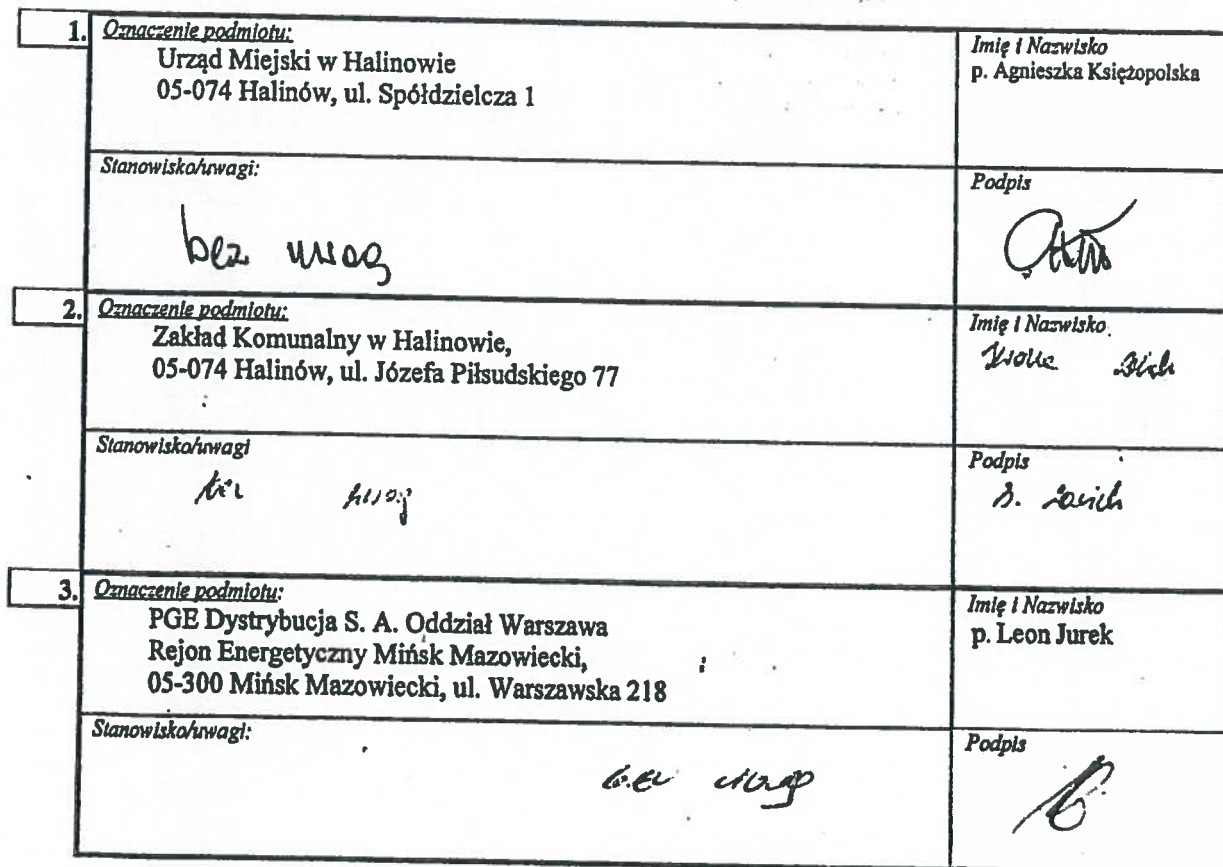 1. Oznaczenie podmiotu:
Urząd Miejski w Halinowie
05-074 Halinów, ul. Spółdzielcza 1
Imię i Nazwisko
p. Agnieszka Księżopolska
Stanowisko/uwagi:
bez uwag
Podpis
2. Oznaczenie podmiotu:
Zakład Komunalny w Halinowie,
05-074 Halinów, ul. Józefa Piłsudskiego 77
Imię i Nazwisko
Stanowisko/uwagi
bez uwag
Podpis
3. Oznaczenie podmiotu:
PGE Dystrybucja S. A. Oddział Warszawa
Rejon Energetyczny Mińsk Mazowiecki,
05-300 Mińsk Mazowiecki, ul. Warszawska 218
Imię i Nazwisko
p. Leon Jurek
Stanowisko/uwagi:
bez uwag
Podpis